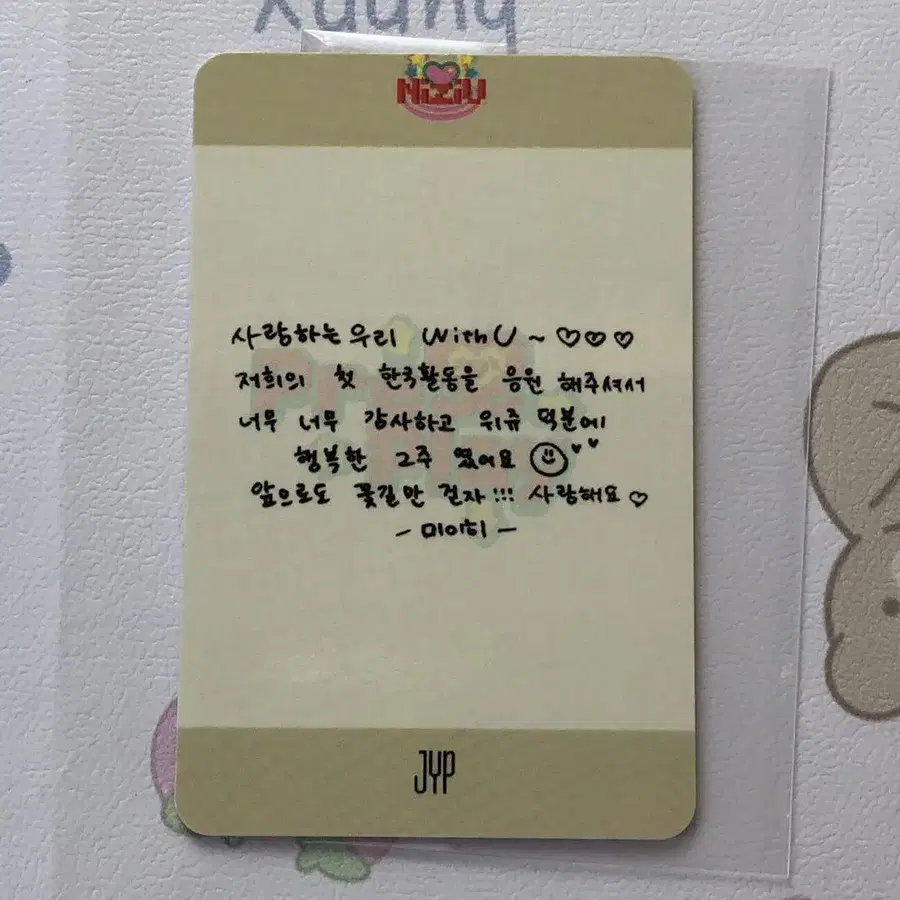 NiziU
사랑하는 우리 WithU ~ ♡♡♡
저희의 첫 한국활동을 응원 해주셔서
너무 너무 감사하고 위쥬 덕분에
행복한 2주 였어요 ☺ ♥♥
앞으로도 꽃길만 걷자!!! 사랑해요♡
- 미이히 -
JYP